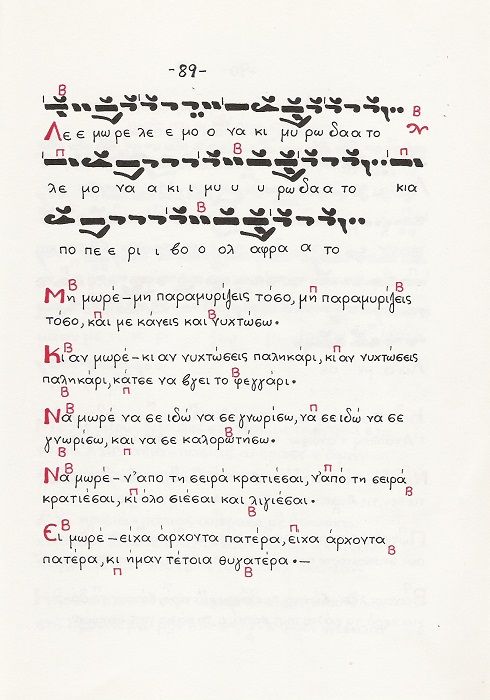 -89-
Λε ε μω ρε λε ε μο ο να κι μυ ρω δα α το
λε μο να α κι ι μυ υ υ ρω δα α το κια
πο πε ε ρι ι βο ο ολ αφρα α το
Μη μωρέ-μη παραμυρίζεις τόσο, μη παραμυρίζεις
τόσο, και με κάνεις και νυχτώσω.
Κι αν μωρέ-κι αν νυχτώσεις παληκάρι, κι αν νυχτώσεις
παληκάρι, κάτσε να βγει το φεγγάρι.
Να μωρέ να σε ιδώ να σε γνωρίσω, να σε ιδώ να σε
γνωρίσω, και να σε καλορωτήσω.
Να μωρέ-ν'απο τη σειρά κρατιέσαι, ν'από τη σειρά
κρατιέσαι, κι όλο σιέσαι και λιγιέσαι.
Ει μωρέ-είχα άρχοντα πατέρα, είχα άρχοντα
πατέρα, κι ήμαν τέτοια θυγατέρα.-